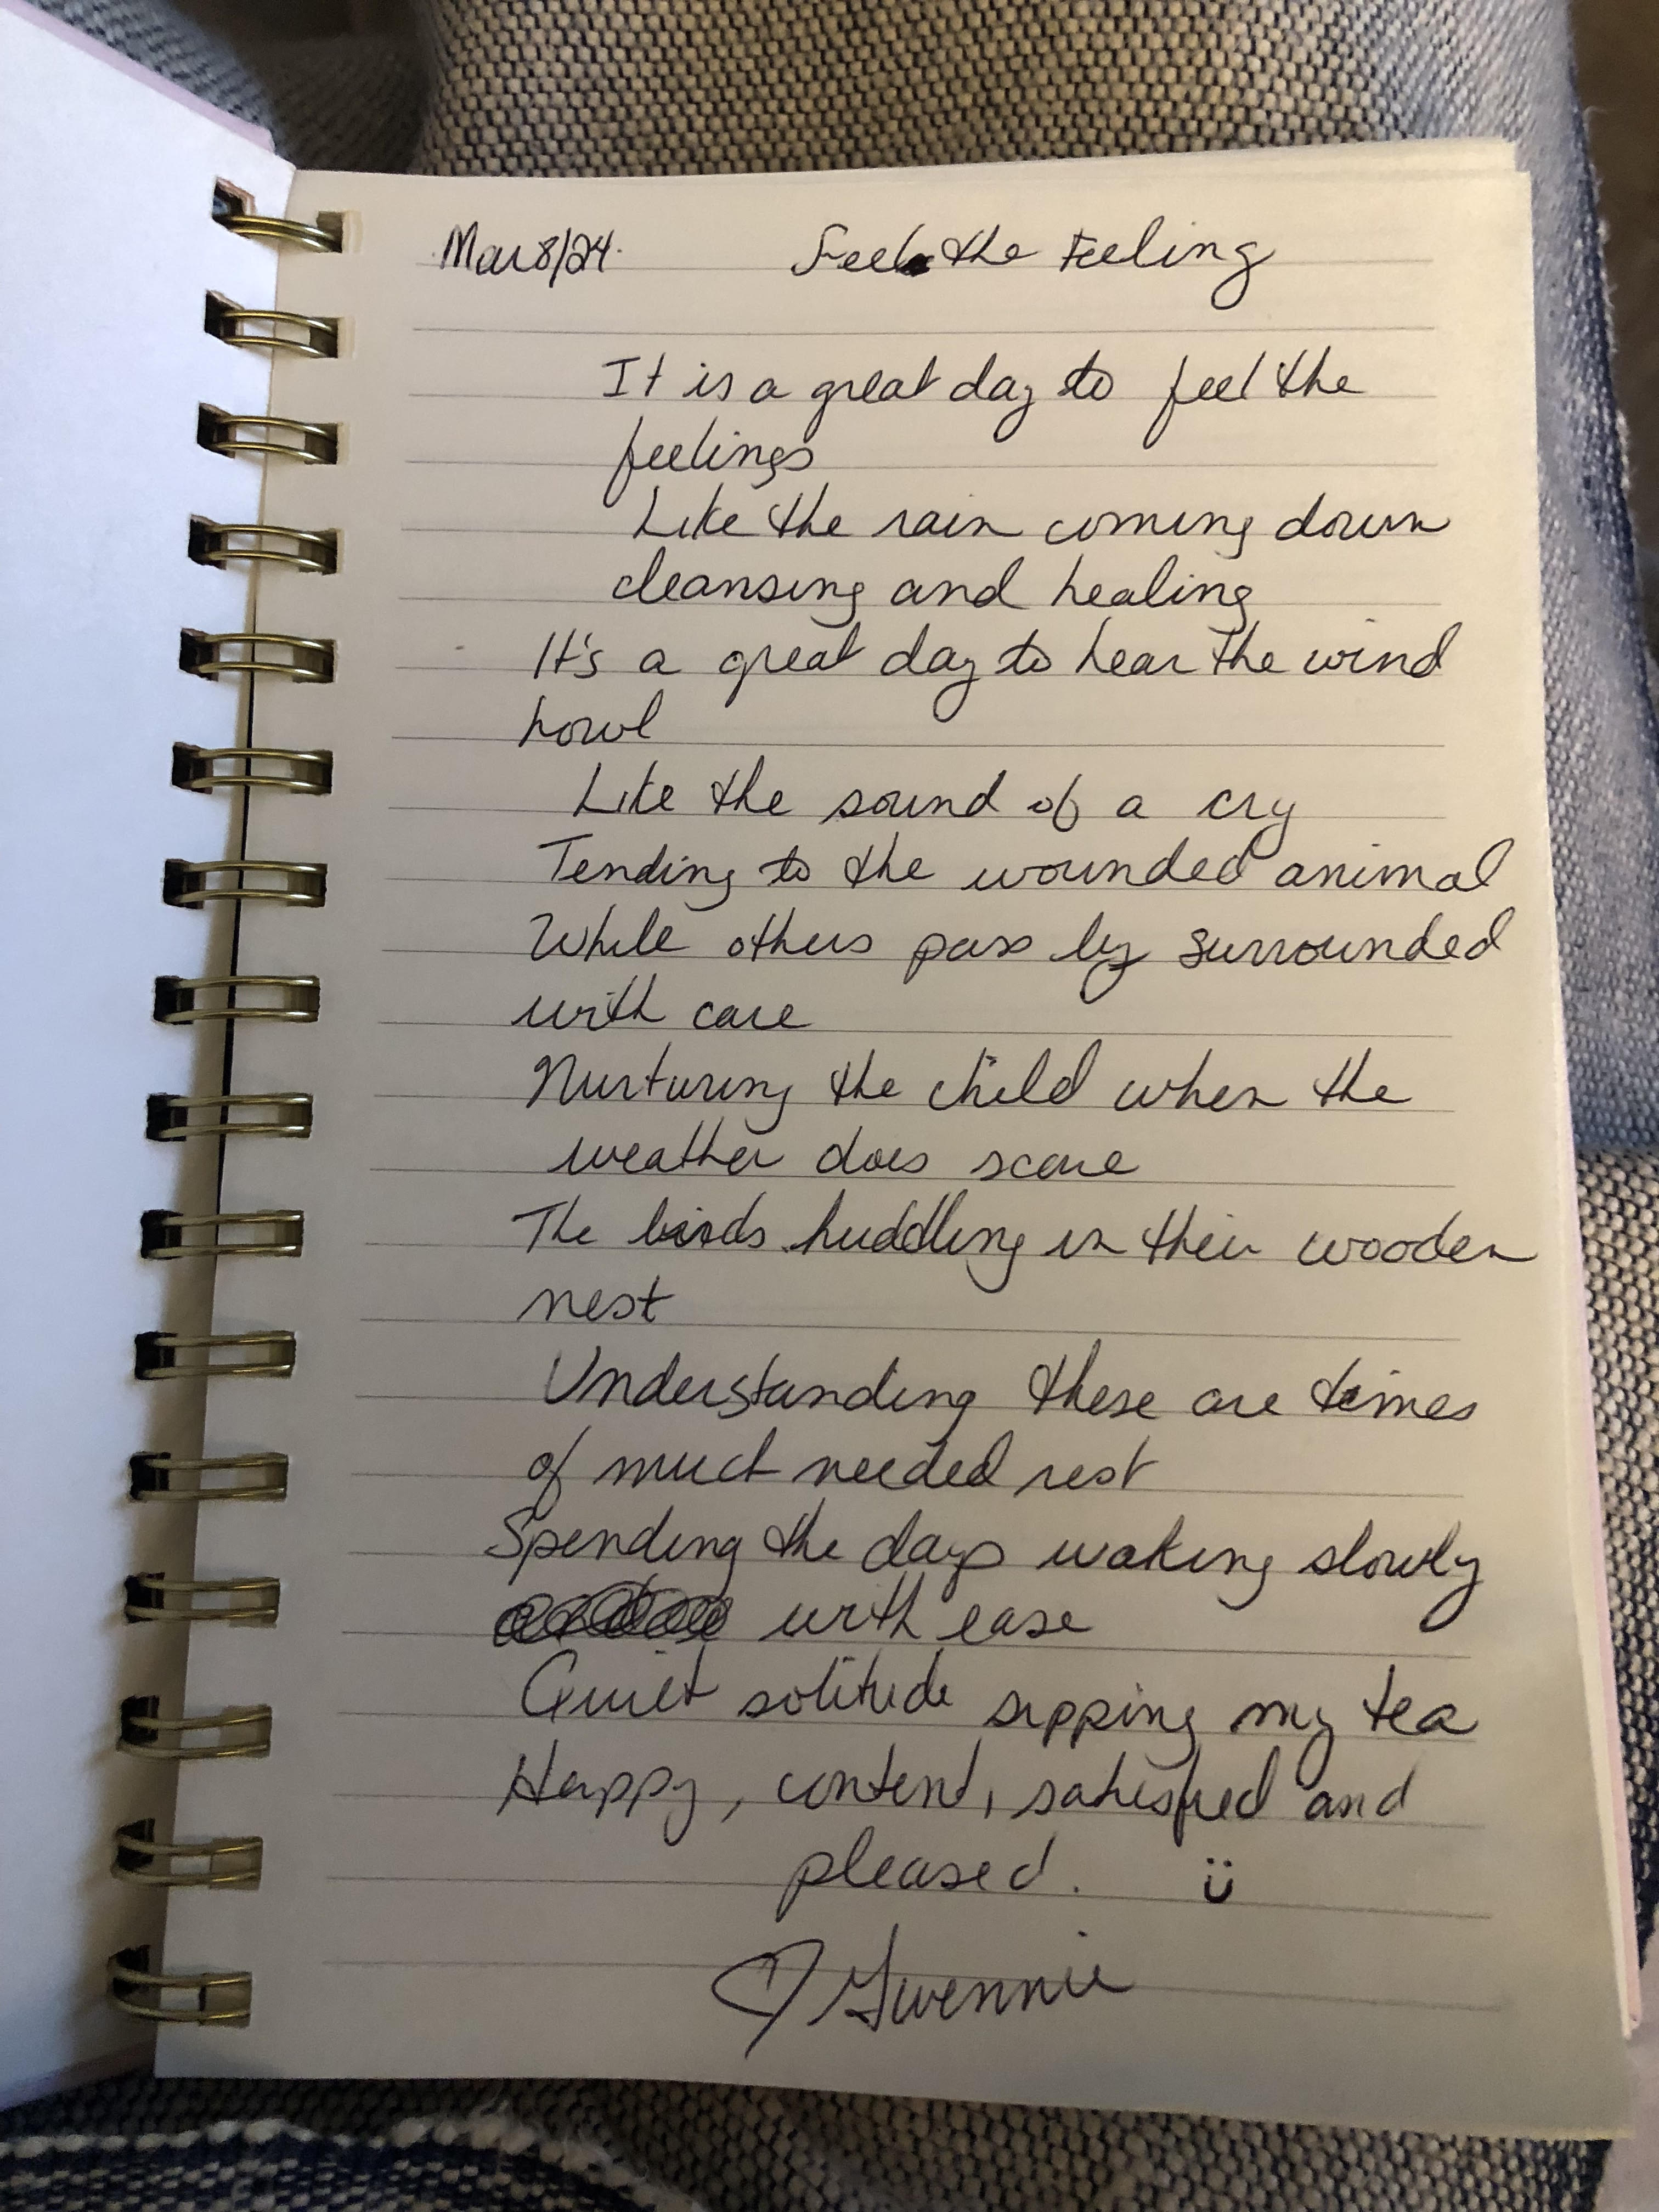 Mar 8/24. Feel the Feeling
It is a great day to feel the
feelings
Like the rain coming down
cleansing and healing
It's a great day to hear the wind
howl
Like the sound of a cry
Tending to the wounded animal
While others pass by surrounded
with care
Nurturing the child when the
weather does scare
The birds huddling in their wooden
nest
Understanding these are times
of much needed rest
Spending the days waking slowly
with ease
Quiet solitude sipping my tea
Happy, content, satisfied and
pleased. ü
♡ Gwennie